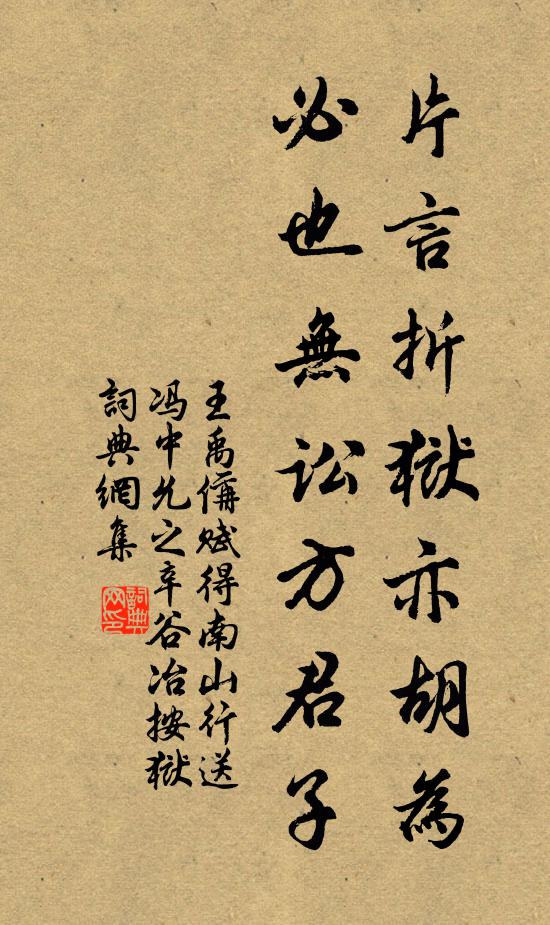 片言折獄亦胡為
必也無訟方君子
王禹偁赋得南山行送
冯中允之辛谷冶按獄
詞典網集
詞典
网印